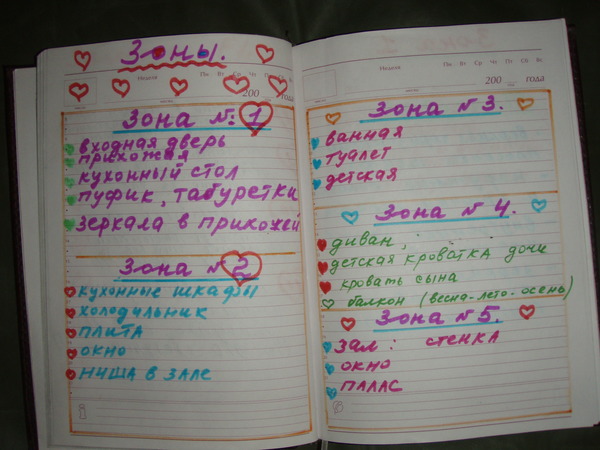 Зоны.
Неделя Пн Вт Ср Чт Пт Сб Вс
200 года
Зона №: 1
входная дверь
прихожая
кухонный стол
пуфик, табуретки
зеркала в прихожей
Зона № 2
кухонные шкафы
холодильник
плита
окно
ниша в зале
Неделя Пн Вт Ср Чт Пт Сб Вс
200 года
Зона № 3.
ванная
туалет
детская
Зона № 4.
диван,
детская кроватка дочи
кровать сына
балкон (весна-лето-осень)
Зона № 5.
зал: стенка
окно
палас